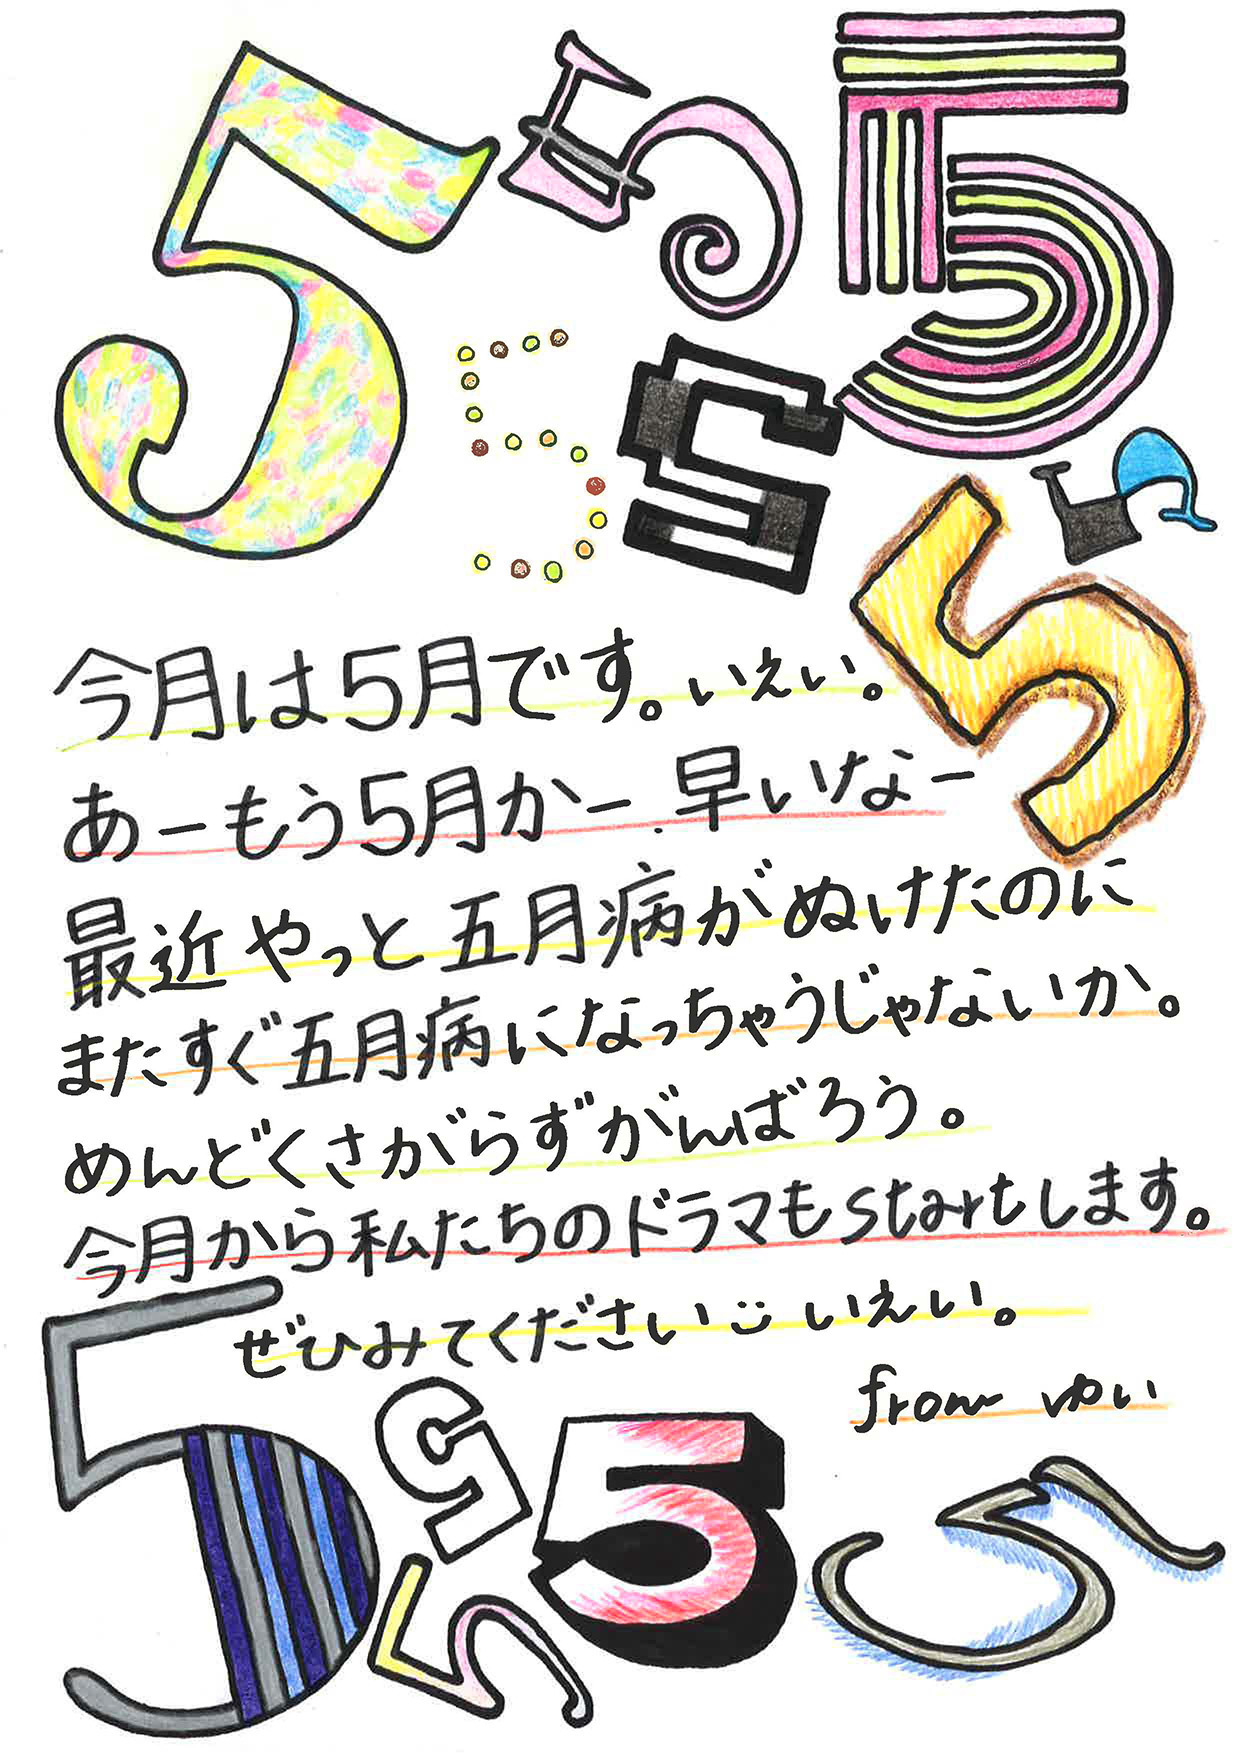 5 5 5
5 5 5
5
今月は5月です。いえい。
あーもう5月かー.早いなー
最近やっと五月病がぬけたのに
またすぐ五月病になっちゃうじゃないか。
めんどくさがらずがんばろう。
今月から私たちのドラマもstartします。
ぜひみてください いえい。
from ゆい
5 5 5 5
5